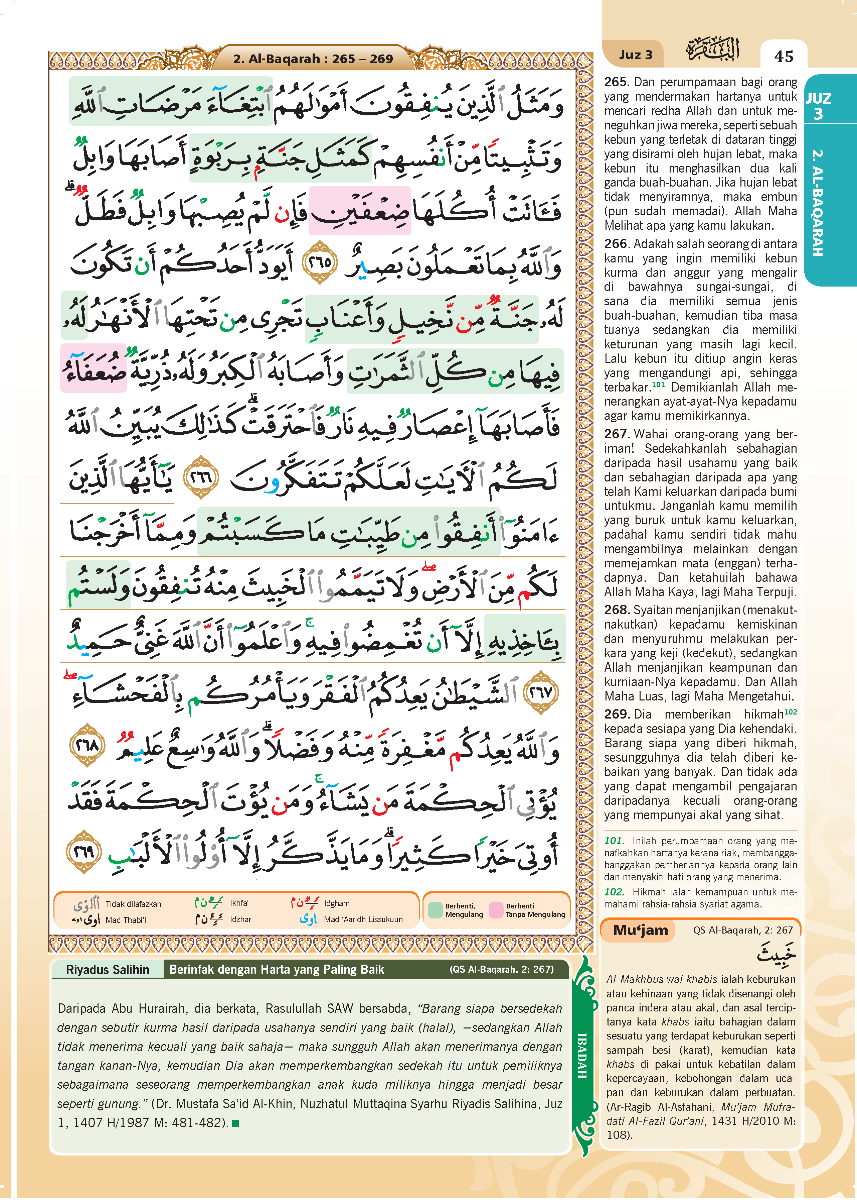 2. Al-Baqarah : 265 – 269
Juz 3
البقرة
45
JUZ
3
2. AL-BAQARAH
وَمَثَلُ ٱلَّذِينَ يُنفِقُونَ أَمْوَٰلَهُمُ ٱبْتِغَآءَ مَرْضَاتِ ٱللَّهِ
وَتَثْبِيتًا مِّنْ أَنفُسِهِمْ كَمَثَلِ جَنَّةٍۭ بِرَبْوَةٍ أَصَابَهَا وَابِلٌ
فَـَٔاتَتْ أُكُلَهَا ضِعْفَيْنِ فَإِن لَّمْ يُصِبْهَا وَابِلٌ فَطَلٌّ ۗ
وَٱللَّهُ بِمَا تَعْمَلُونَ بَصِيرٌ ٢٦٥ أَيَوَدُّ أَحَدُكُمْ أَن تَكُونَ
لَهُۥ جَنَّةٌ مِّن نَّخِيلٍ وَأَعْنَابٍ تَجْرِى مِن تَحْتِهَا ٱلْأَنْهَـٰرُ لَهُۥ
فِيهَا مِن كُلِّ ٱلثَّمَرَٰتِ وَأَصَابَهُ ٱلْكِبَرُ وَلَهُۥ ذُرِّيَّةٌ ضُعَفَآءُ
فَأَصَابَهَآ إِعْصَارٌ فِيهِ نَارٌ فَٱحْتَرَقَتْ ۗ كَذَٰلِكَ يُبَيِّنُ ٱللَّهُ
لَكُمُ ٱلْـَٔايَـٰتِ لَعَلَّكُمْ تَتَفَكَّرُونَ ٢٦٦ يَـٰٓأَيُّهَا ٱلَّذِينَ
ءَامَنُوٓا۟ أَنفِقُوا۟ مِن طَيِّبَـٰتِ مَا كَسَبْتُمْ وَمِمَّآ أَخْرَجْنَا
لَكُم مِّنَ ٱلْأَرْضِ ۖ وَلَا تَيَمَّمُوا۟ ٱلْخَبِيثَ مِنْهُ تُنفِقُونَ وَلَسْتُم
بِـَٔاخِذِيهِ إِلَّآ أَن تُغْمِضُوا۟ فِيهِ ۚ وَٱعْلَمُوٓا۟ أَنَّ ٱللَّهَ غَنِىٌّ حَمِيدٌ
٢٦٧ ٱلشَّيْطَـٰنُ يَعِدُكُمُ ٱلْفَقْرَ وَيَأْمُرُكُم بِٱلْفَحْشَآءِ ۖ
وَٱللَّهُ يَعِدُكُم مَّغْفِرَةً مِّنْهُ وَفَضْلًا ۗ وَٱللَّهُ وَٰسِعٌ عَلِيمٌ ٢٦٨
يُؤْتِى ٱلْحِكْمَةَ مَن يَشَآءُ ۚ وَمَن يُؤْتَ ٱلْحِكْمَةَ فَقَدْ
أُوتِىَ خَيْرًا كَثِيرًا ۗ وَمَا يَذَّكَّرُ إِلَّآ أُو۟لُوا۟ ٱلْأَلْبَـٰبِ ٢٦٩
Tidak dilafazkan
Ikhfa'
Idgham
Mad Thabi'i
Idzhar
Mad 'Aaridh Lissukuun
Berhenti,
Mengulang
Berhenti
Tanpa Mengulang
265. Dan perumpamaan bagi orang
yang mendermakan hartanya untuk
mencari redha Allah dan untuk me-
neguhkan jiwa mereka, seperti sebuah
kebun yang terletak di dataran tinggi
yang disirami oleh hujan lebat, maka
kebun itu menghasilkan dua kali
ganda buah-buahan. Jika hujan lebat
tidak menyiramnya, maka embun
(pun sudah memadai). Allah Maha
Melihat apa yang kamu lakukan.
266. Adakah salah seorang di antara
kamu yang ingin memiliki kebun
kurma dan anggur yang mengalir
di bawahnya sungai-sungai, di
sana dia memiliki semua jenis
buah-buahan, kemudian tiba masa
tuanya sedangkan dia memiliki
keturunan yang masih lagi kecil.
Lalu kebun itu ditiup angin keras
yang mengandungi api, sehingga
terbakar.101 Demikianlah Allah me-
nerangkan ayat-ayat-Nya kepadamu
agar kamu memikirkannya.
267. Wahai orang-orang yang ber-
iman! Sedekahkanlah sebahagian
daripada hasil usahamu yang baik
dan sebahagian daripada apa yang
telah Kami keluarkan daripada bumi
untukmu. Janganlah kamu memilih
yang buruk untuk kamu keluarkan,
padahal kamu sendiri tidak mahu
mengambilnya melainkan dengan
memejamkan mata (enggan) terha-
dapnya. Dan ketahuilah bahawa
Allah Maha Kaya, lagi Maha Terpuji.
268. Syaitan menjanjikan (menakut-
nakutkan) kepadamu kemiskinan
dan menyuruhmu melakukan per-
kara yang keji (kedekut), sedangkan
Allah menjanjikan keampunan dan
kurniaan-Nya kepadamu. Dan Allah
Maha Luas, lagi Maha Mengetahui.
269. Dia memberikan hikmah102
kepada sesiapa yang Dia kehendaki.
Barang siapa yang diberi hikmah,
sesungguhnya dia telah diberi ke-
baikan yang banyak. Dan tidak ada
yang dapat mengambil pengajaran
daripadanya kecuali orang-orang
yang mempunyai akal yang sihat.
101. Inilah perumpamaan orang yang me-
nafkahkan hartanya kerana riak, membangga-
banggakan pemberiannya kepada orang lain
dan menyakiti hati orang yang menerima.
102. Hikmah ialah kemampuan untuk me-
mahami rahsia-rahsia syariat agama.
Mu‘jam
QS Al-Baqarah, 2: 267
خَبِيثَ
Al Makhbus wal khabis ialah keburukan
atau kehinaan yang tidak disenangi oleh
panca indera atau akal, dan asal tercip-
tanya kata khabs iaitu bahagian dalam
sesuatu yang terdapat keburukan seperti
sampah besi (karat), kemudian kata
khabs di pakai untuk kebatilan dalam
kepercayaan, kebohongan dalam uca
pan dan keburukan dalam perbuatan.
(Ar-Ragib Al-Asfahani, Mu'jam Mufra-
dati Al-Fazil Qur'ani, 1431 H/2010 M:
108).
Riyadus Salihin
Berinfak dengan Harta yang Paling Baik
(QS Al-Baqarah. 2: 267)
Daripada Abu Hurairah, dia berkata, Rasulullah SAW bersabda, “Barang siapa bersedekah
dengan sebutir kurma hasil daripada usahanya sendiri yang baik (halal), —sedangkan Allah
tidak menerima kecuali yang baik sahaja— maka sungguh Allah akan menerimanya dengan
tangan kanan-Nya, kemudian Dia akan memperkembangkan sedekah itu untuk pemiliknya
sebagaimana seseorang memperkembangkan anak kuda miliknya hingga menjadi besar
seperti gunung.” (Dr. Mustafa Sa'id Al-Khin, Nuzhatul Muttaqina Syarhu Riyadis Salihina, Juz
1, 1407 H/1987 M: 481-482).
IBADAH